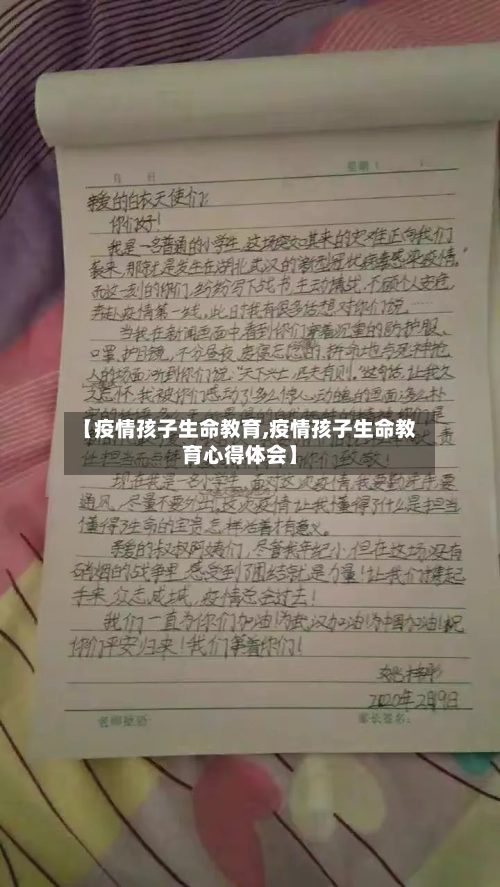 月 日
星期(
亲爱的白衣天使们:
你们好!
我是一名普通的小学生,这场突如其来的灾难正向我们
袭来,那就是发生在湖北武汉的"新型冠状病毒感染疫情。"
而这一刻的你们,纷纷写下战书,主动请战,不顾个人安危
奔赴疫情第一线,此时我有很多话想对你们说……
当我在新闻画面中看到你们穿着沉重的防护服、
口罩、护目镜,不分昼夜,废寝忘 的
人的场面 听到你们说:"天下兴亡,匹夫有则。"这句话让我久
久忘怀,我被你们感动了!多么惊心动魄的画面,多么朴
【疫情孩子生命教育,疫情孩子生命教
育心得体会】
任担当而点 你们致敬!
现在我是一名小学生,面对这次疫情,我要勤洗手,要
通风,尽量不要外出,这次疫情让我懂得了什么是担当
懂得了生命的宝贵,怎样活着才有意义。
亲爱的叔叔阿姨们,尽管我年纪小,但在这场没有
硝烟的战争里,感受到了团结就是力量!让我们携起
手来,众志成城,疫情总会过去!
我们一直为你们加油!为武汉加油!为中国加油!祝
你们平安归来!我们等着你们!
2020年2月9日
老师评语:
家长签名: